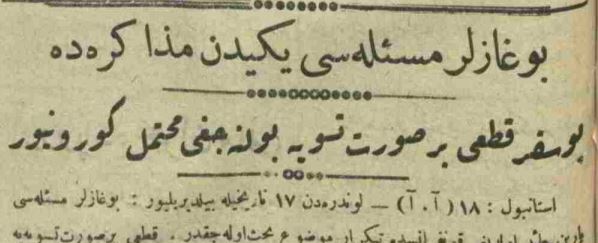 بوغازلر مسئله‌سی یکیدن مذاکره‌ده
بوسفر قطعی بر صورت تسویه بولنه‌جغی محتمل کورونیور
استانبول : ۱۸ ( آ . آ ) — لوندره‌دن ۱۷ تاریخیله بیلدیریلیور : بوغازلر مسئله‌سی
تکرار موضوع بحث اوله‌جقدر . قطعی بر صورت تسویه‌یه